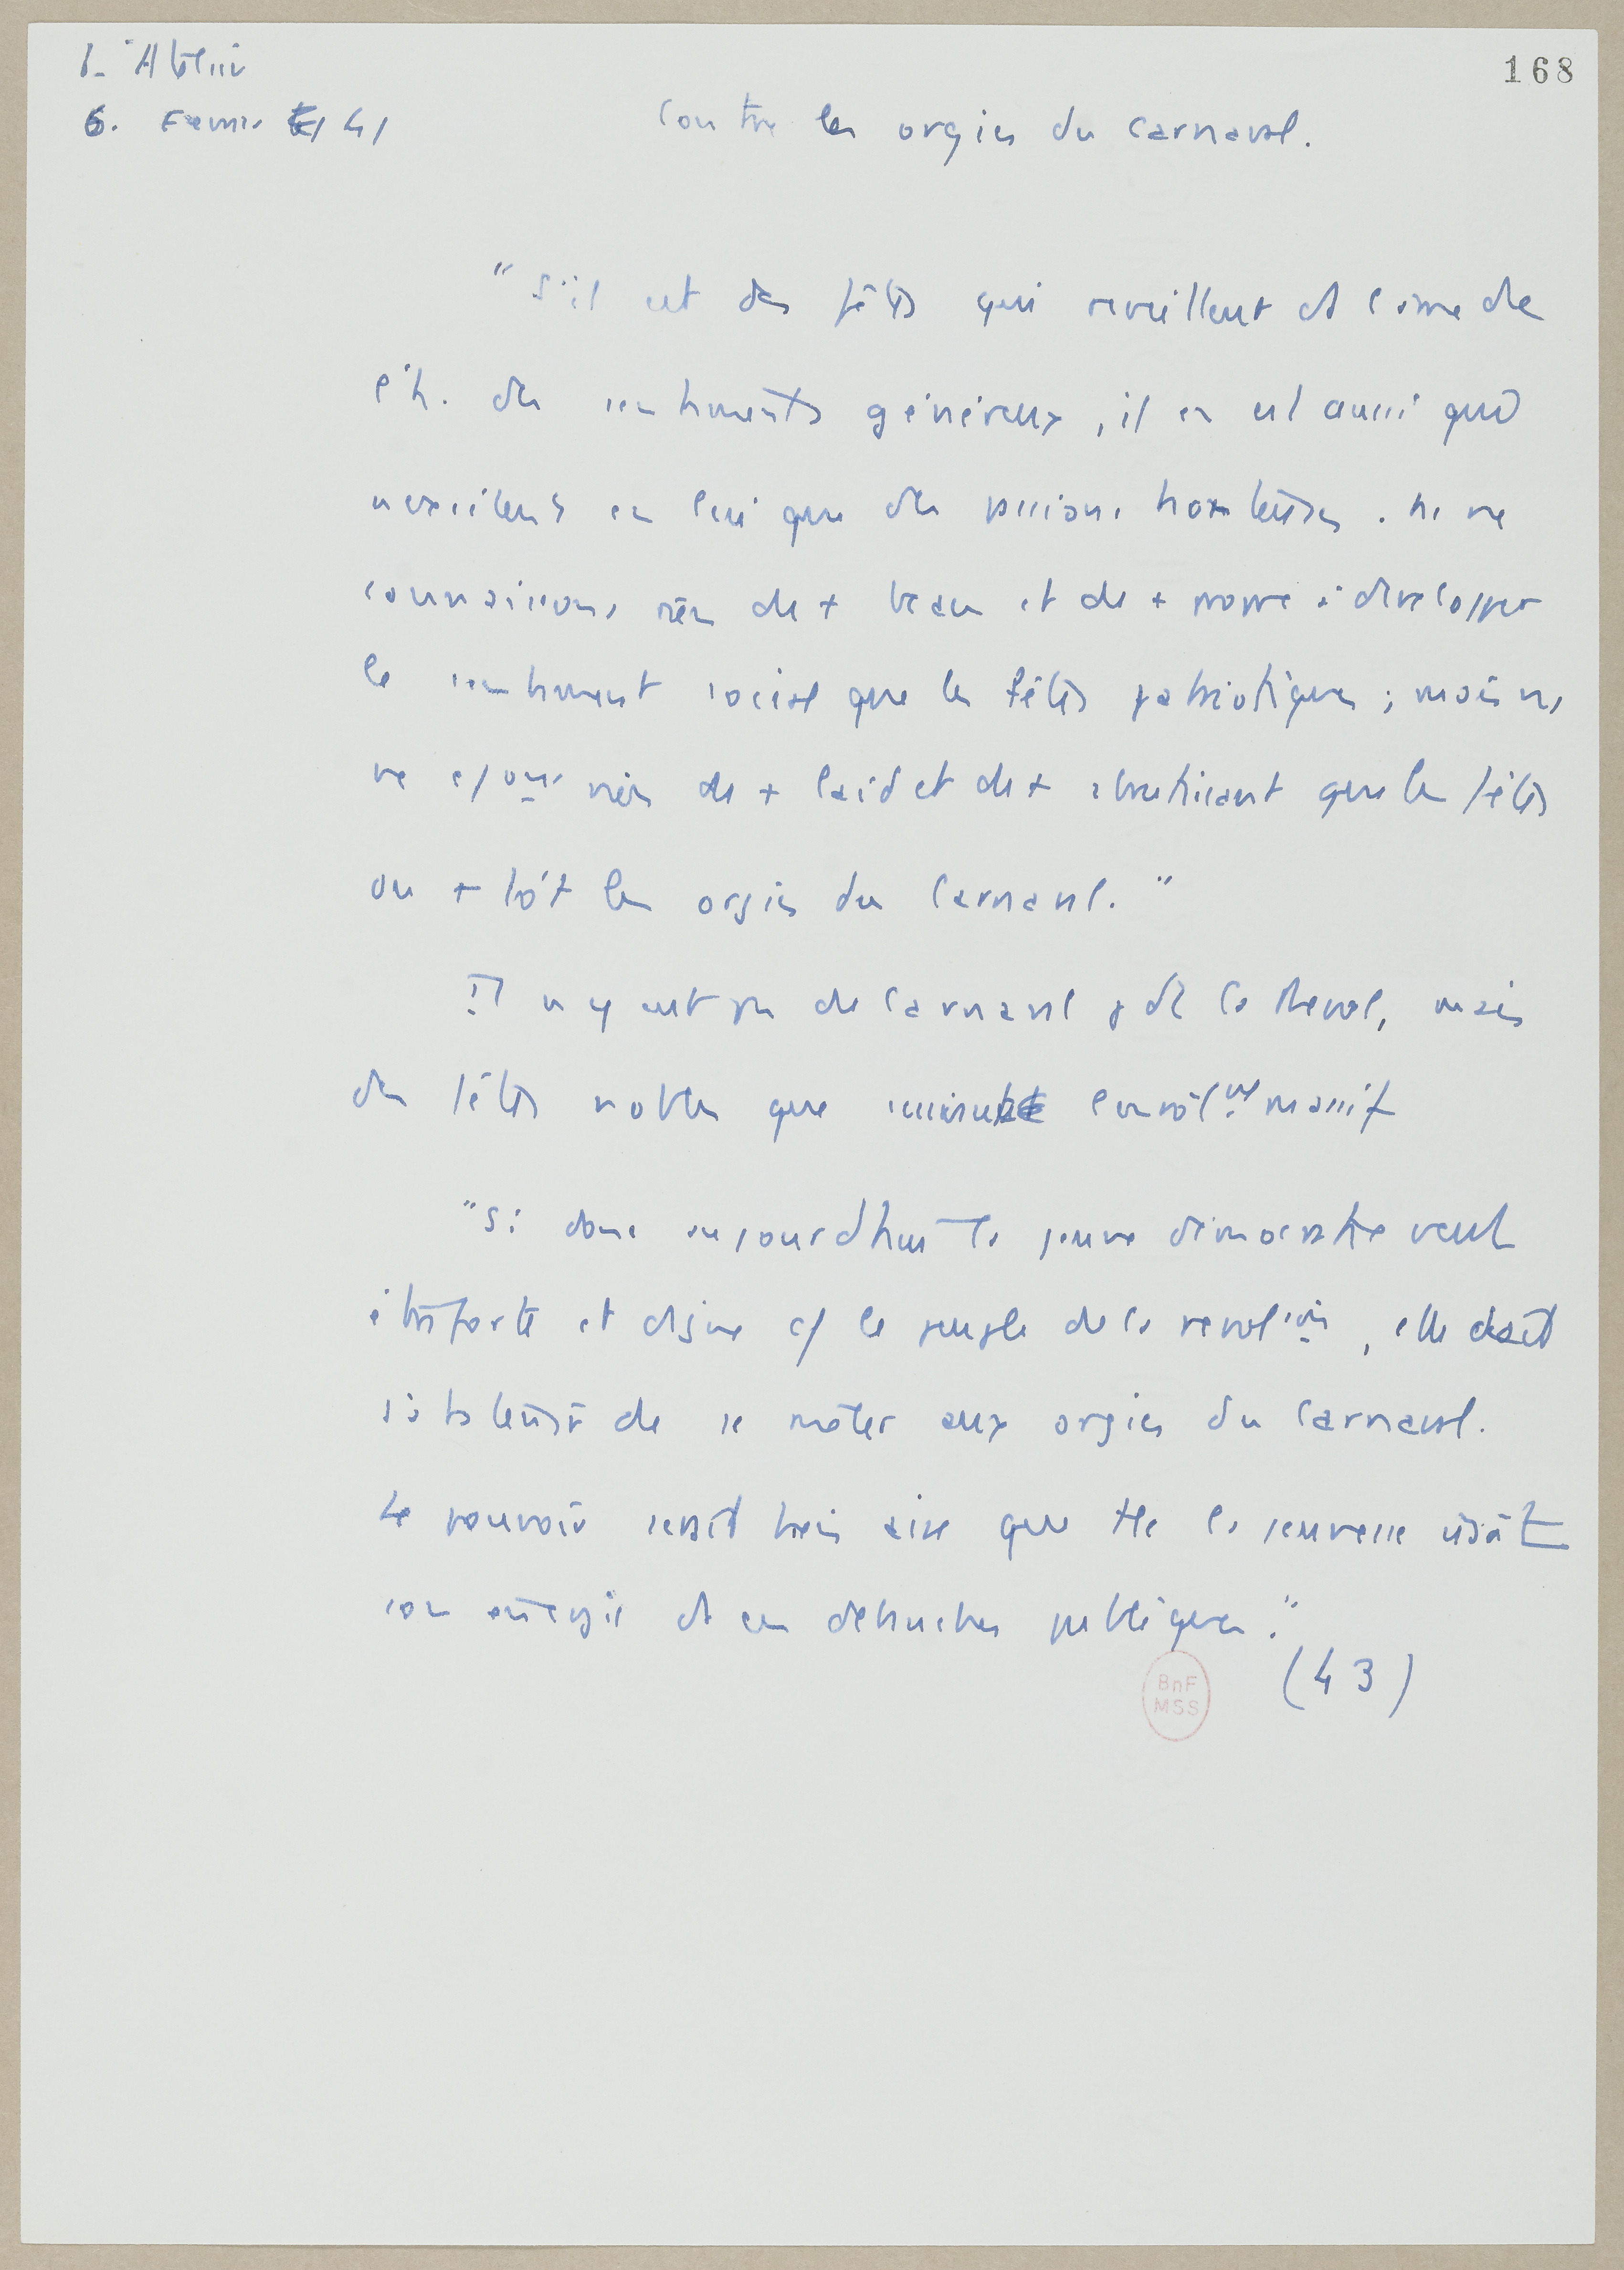 L'Atelier
168
6. Février 41
Contre les orgies du carnaval.
"S'il est des fêtes qui reveillent ds l'âme de
l'h. des sentiments généreux, il en est aussi qui
n'excitent en lui que des passions honteuses. ns ne
connaissons rien de + beau et de + propre à developper
le sentiment social que les fêtes patriotiques ; mais ns
ne c/ons rien de + laid et de + abrutissant que les fêtes
ou + tôt les orgies du Carnaval."
Il n'y eut pas de Carnaval pdt la Révol, mais
des fêtes nobles que l'enrôlmt massif
"Si donc aujourd'hui la jeune démocratie veut
être forte et digne c/ le peuple de la revolion, elle doit
s'abstenir de se mêler aux orgies du Carnaval.
Le pouvoir serait bien aise que tte la jeunesse usât
son énergie ds ces débauches publiques."
(43)
BnF
MSS